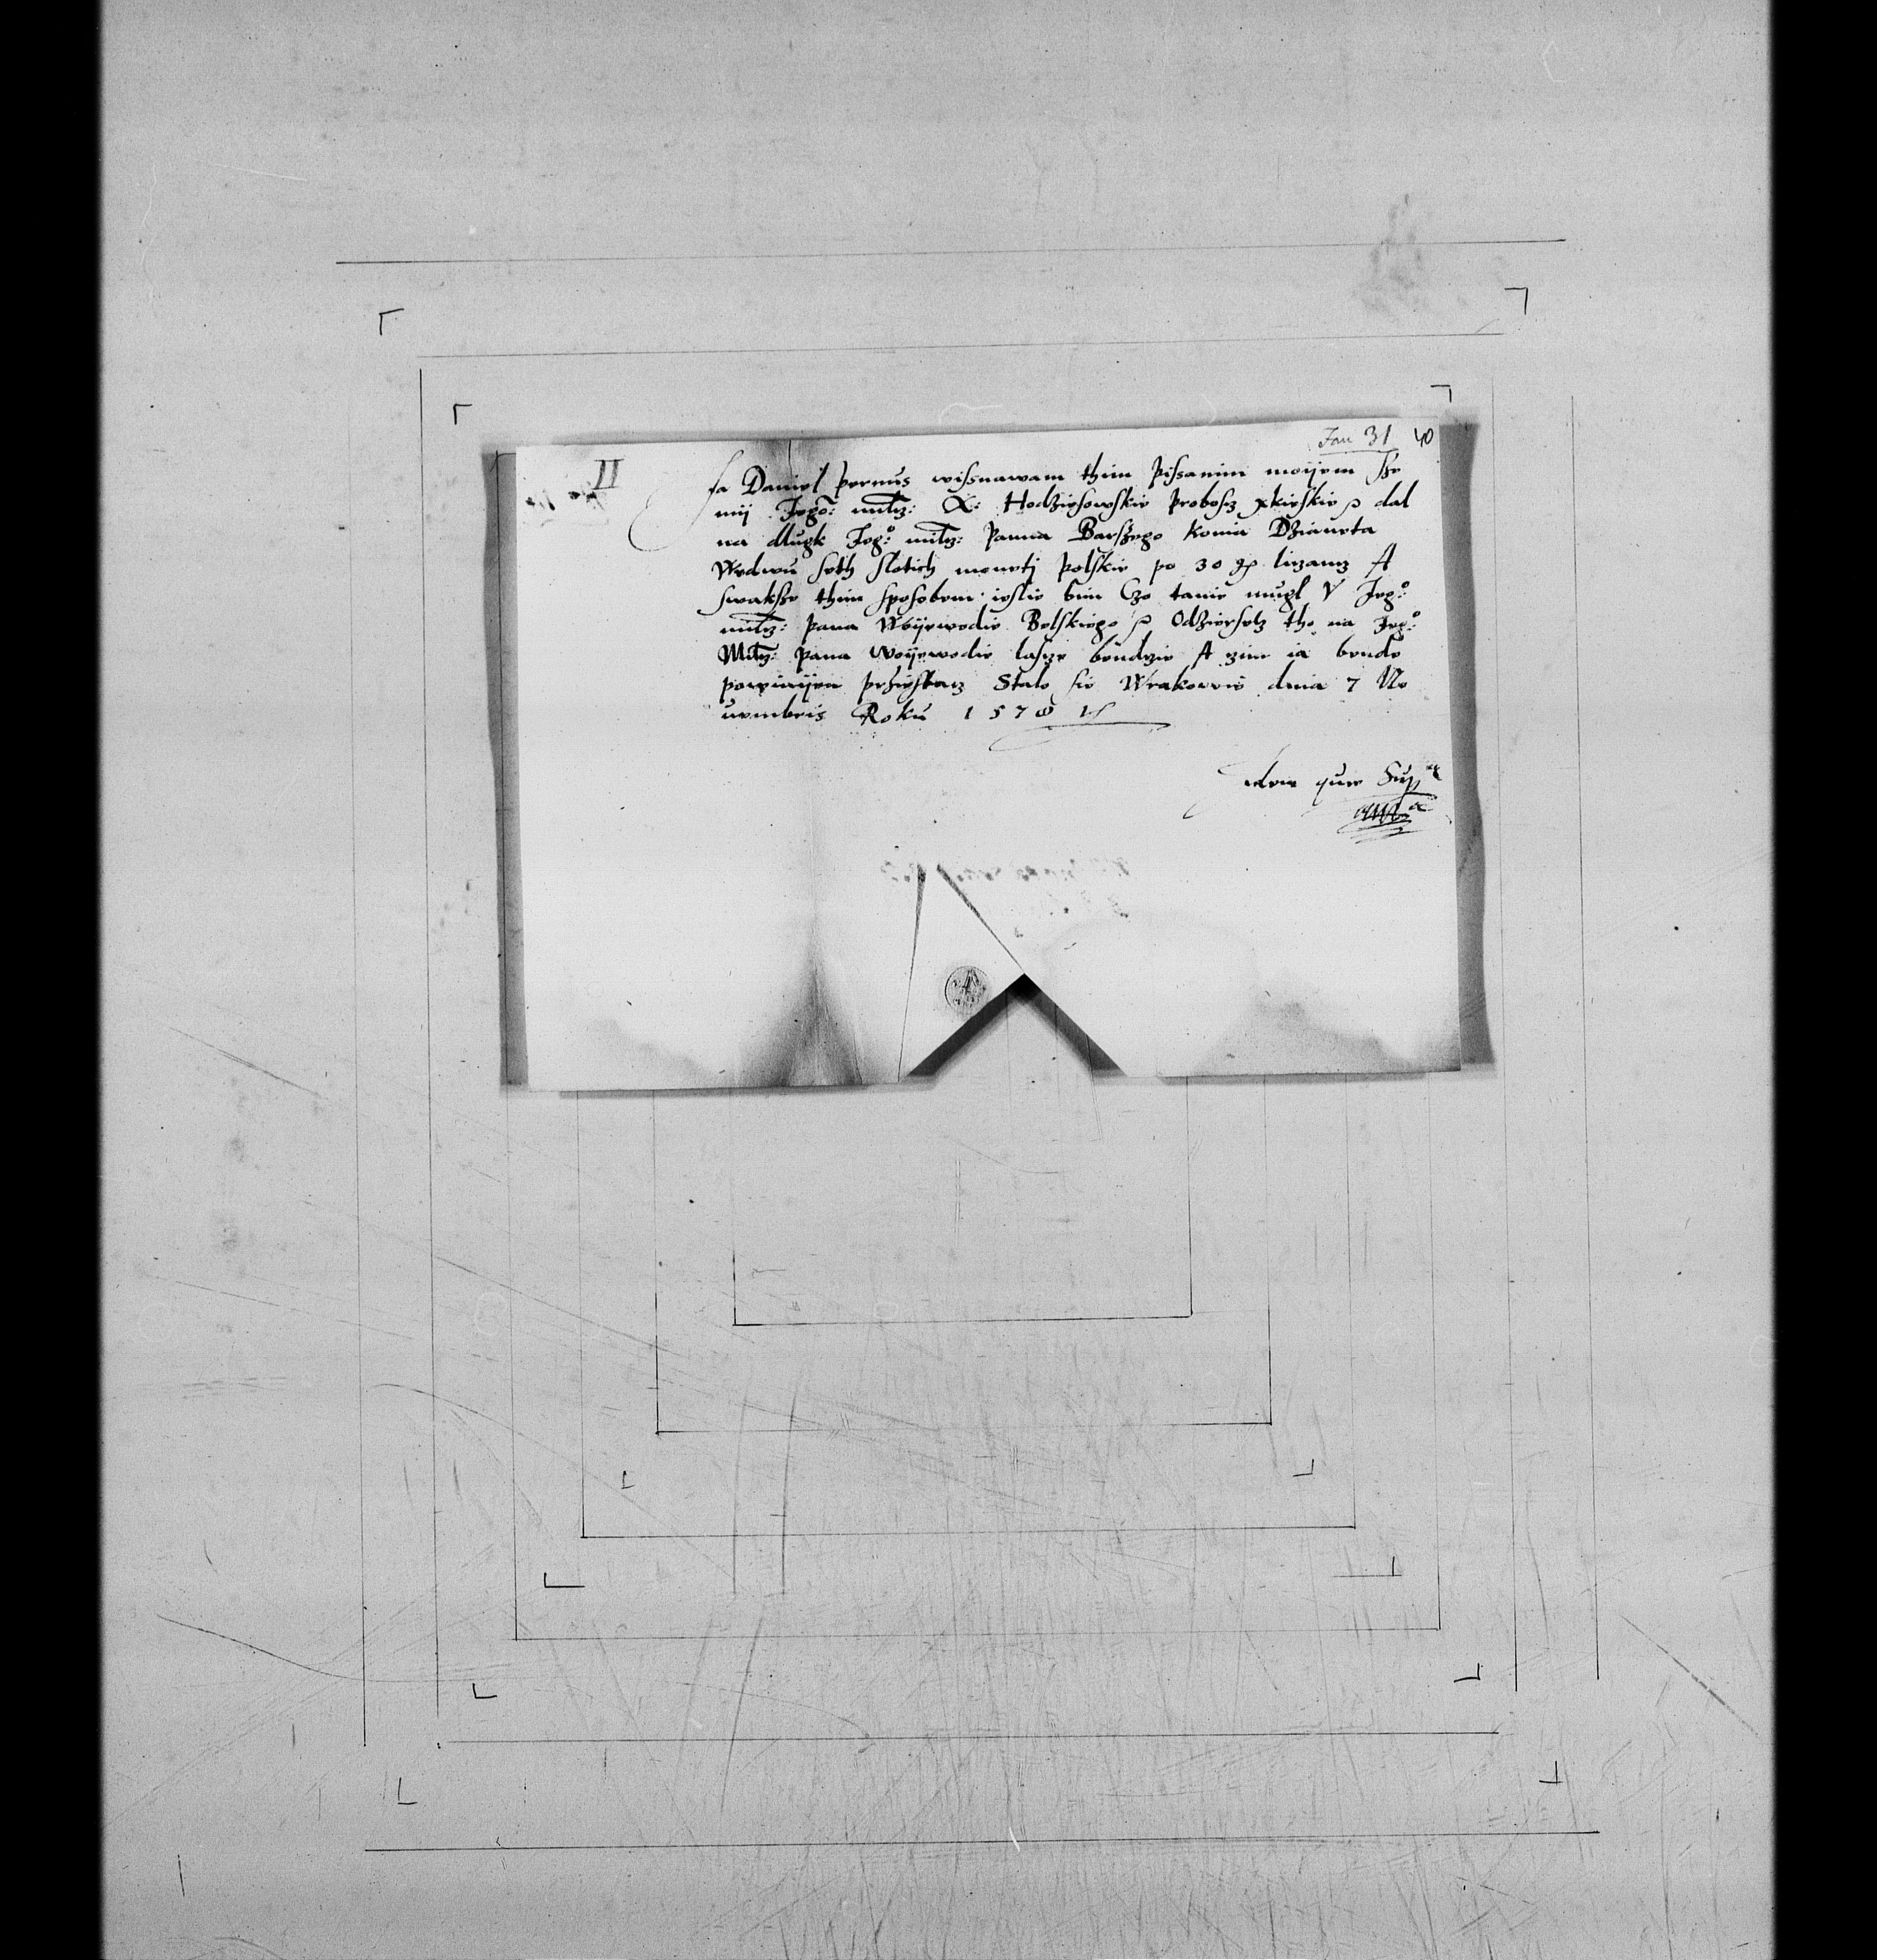 Jan 31 40
II
Ja Daniel pernus wissnawam thim pissanim moijem sze
mij Jego: miltz: X: Hodziesowskie probosz kieskie dal
na dlugk Jeg°: miltz: Panna Barszego konia Dzianeta
Wedwu seth slotich monetj polskie po 30 gr liczancz A
swaksze thim sposobem ieslie bim Czo tanie mugl V Jeg°:
miltz: pana Woijewodie Belskiego Odziersetz tho na Jeg°:
Miltz: pana Woijewodie lasze bendzie A zim ia bende
powinijen przestacz Stalo sie Wkrakowie dnia 7 No
uembris Roku 1578
idem que Supra